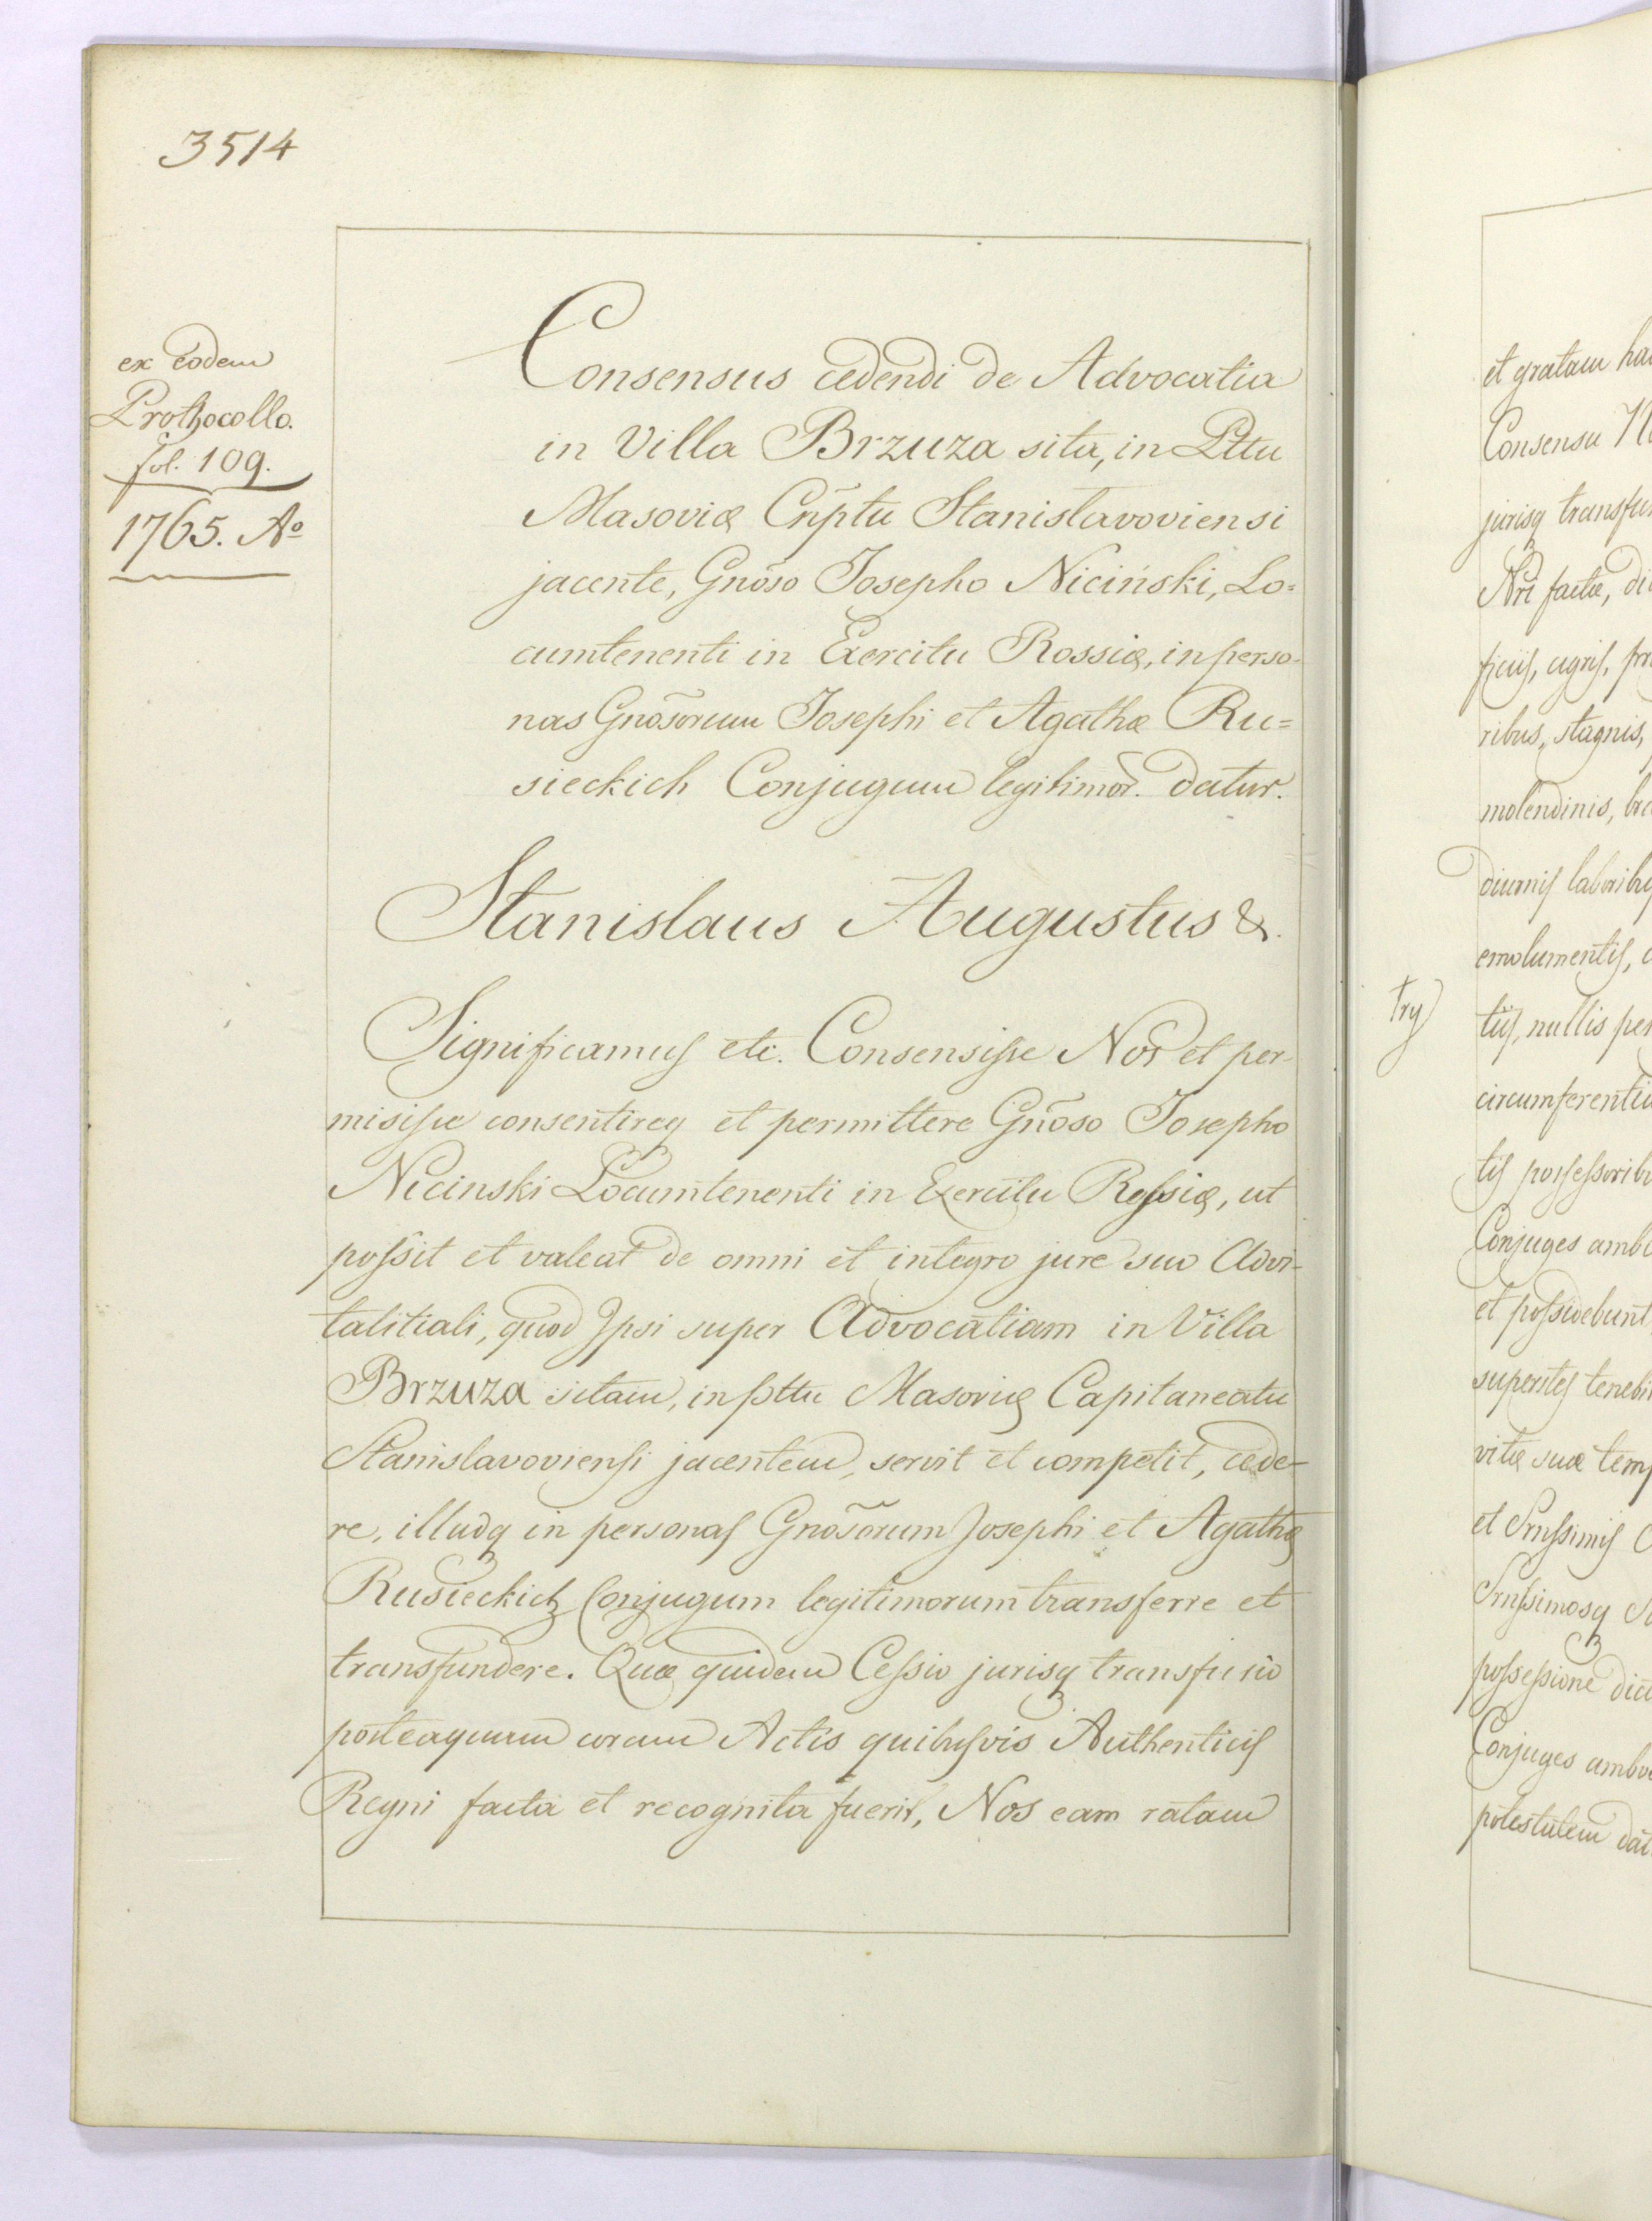 3514
ex eodem
Prothocollo.
fol. 109.
1765. Aº
Consensus cedendi de Advocatia
in Villa Brzuza sita, in Pttu
Masoviæ Cñptu Stanislavoviensi
jacente, Gnõso Josepho Niciński, Lo=
cumtenenti in Exercitu Rossiæ, in perso-
nas Gnõsorum Josephi et Agathæ Ru=
sieckich Conjugum legitimor̃. datur.
Stanislaus Augustus &.
Significamus etc. Consensisse Nos et per-
misisse consentireq et permittere Gnõso Josepho
Nicinski Locumtenenti in Exercitu Rossiæ, ut
possit et valeat de omni et integro jure suo Advi-
talitiali, quod Ipsi super Advocatiam in Villa
Brzuza sitam, in pttu Masoviæ Capitaneatu
Stanislavoviensi jacentem, servit et competit, cede-
re, illudq in personas Gnõsorum Josephi et Agathæ
Rusieckich Conjugum legitimorum transferre et
transfundere. Quæ quidem Cessio jurisq transfusio
posteaquam coram Actis quibusvis Authenticis
Regni facta et recognita fuerit, Nos eam ratam
et gratam
Consensu
jurisq
Nri factæ,
ficiis, agris,
ribus, stagnis,
molendinis,
diurnis
emolumentis,
try
tijs, nullis
tis
Conjuges
et possidebunt
superstes
vitæ suæ
et Srnssimis
Srnssimosq
possessione
Conjuges
potestatem